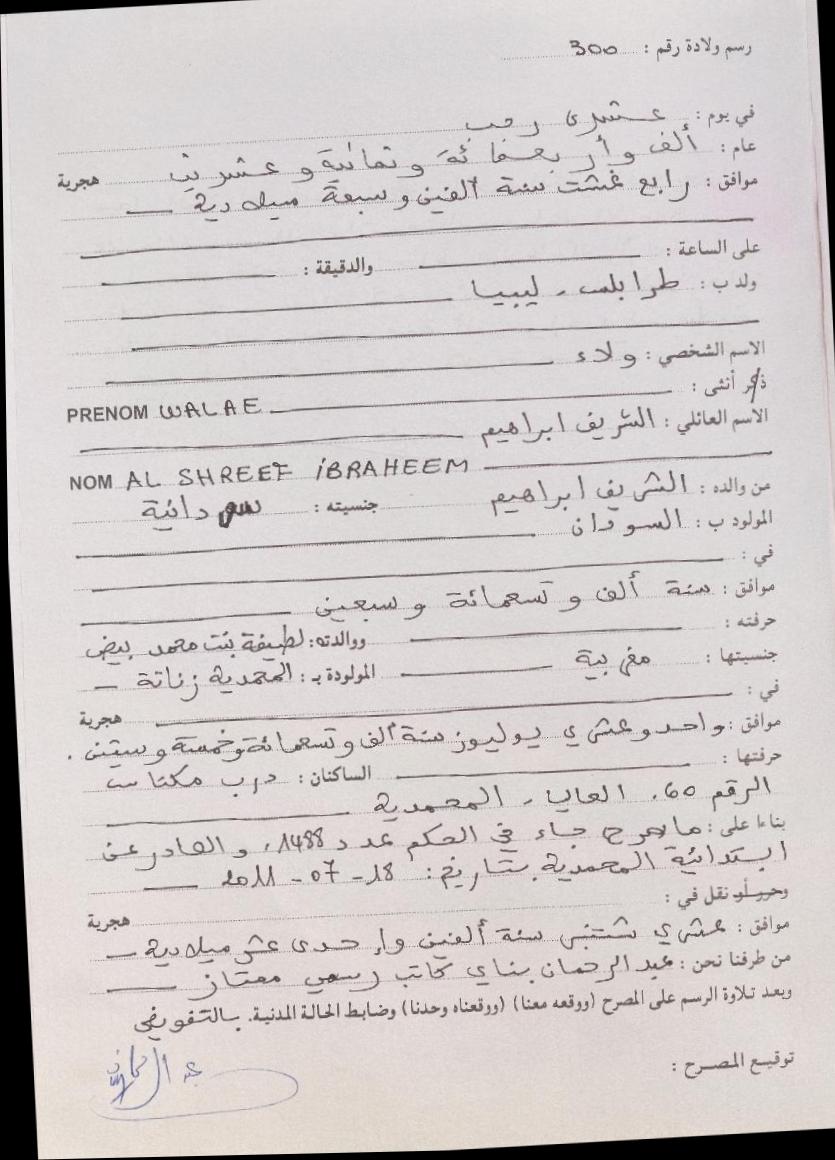 رسم ولادة رقم : 300
في يوم : عشري رجب
عام : ألف وأربعمائة وثمانية وعشرين هجرية
موافق : رابع غشت سنة ألفين وسبعة ميلادية
على الساعة : والدقيقة :
ولد ب : طرابلس - ليبيا
الاسم الشخصي : ولاء
ذكر أنثى :
PRENOM WALAE
الاسم العائلي : الشريف ابراهيم
NOM AL SHREEF IBRAHEEM
من والده : الشريف ابراهيم جنسيته : سودانية
المولود ب : السودان
في :
موافق : سنة ألف وتسعمائة وسبعين
حرفته : ووالدته : لطيفة بنت محمد بيض
جنسيتها : مغربية المولودة بـ : المحمدية زناتة
في : هجرية
موافق : واحد وعشري يوليوز سنة ألف وتسعمائة وخمسة وستين .
حرفتها : الساكنان : درب مكناس
الرقم 60 . العاليا - المحمدية
بناءا على : ما صرح جاء في الحكم عدد 1488 . والصادر عن
ابتدائية المحمدية بتاريخ : 18 - 07 - 2011
وحرر أو نقل في : هجرية
موافق : عشري شتنبر سنة ألفين وإحدى عشر ميلادية
من طرفنا نحن : عبد الرحمان بناي كاتب رسمي ممتاز
وبعد تلاوة الرسم على المصرح (ووقعه معنا) (ووقعناه وحدنا) وضابط الحالة المدنية. بالتفويض
توقيع المصرح :